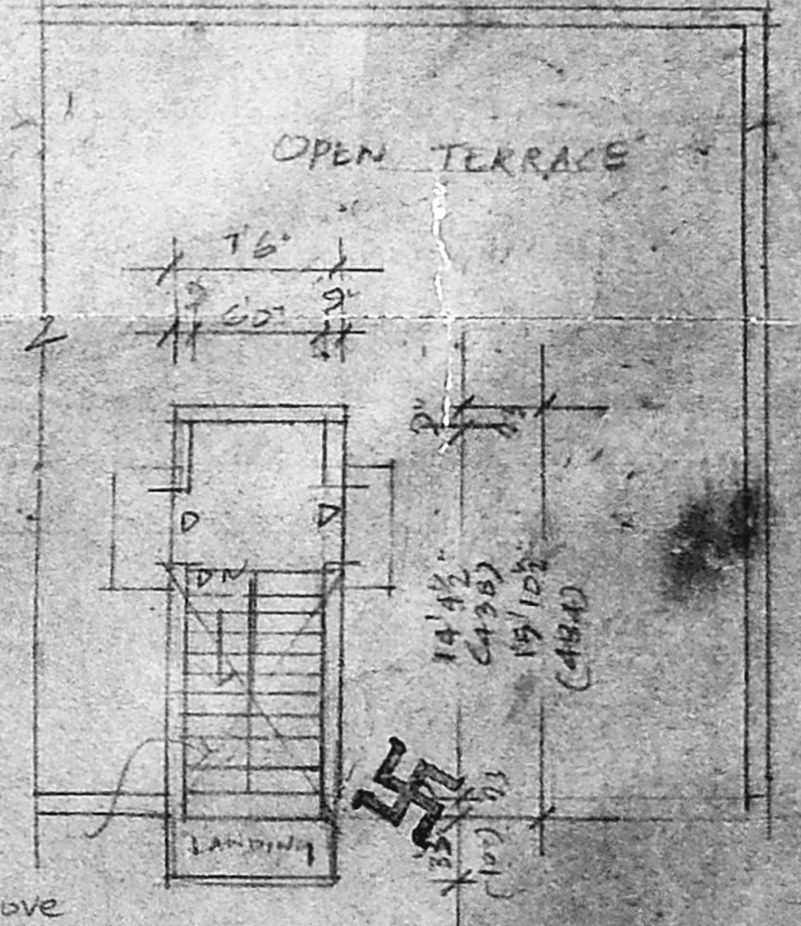 OPEN TERRACE
7'6"
9"
6'0"
9"
9"
D
D
DN
14'4½"
(438)
15'10½"
(484)
LANDING
ove